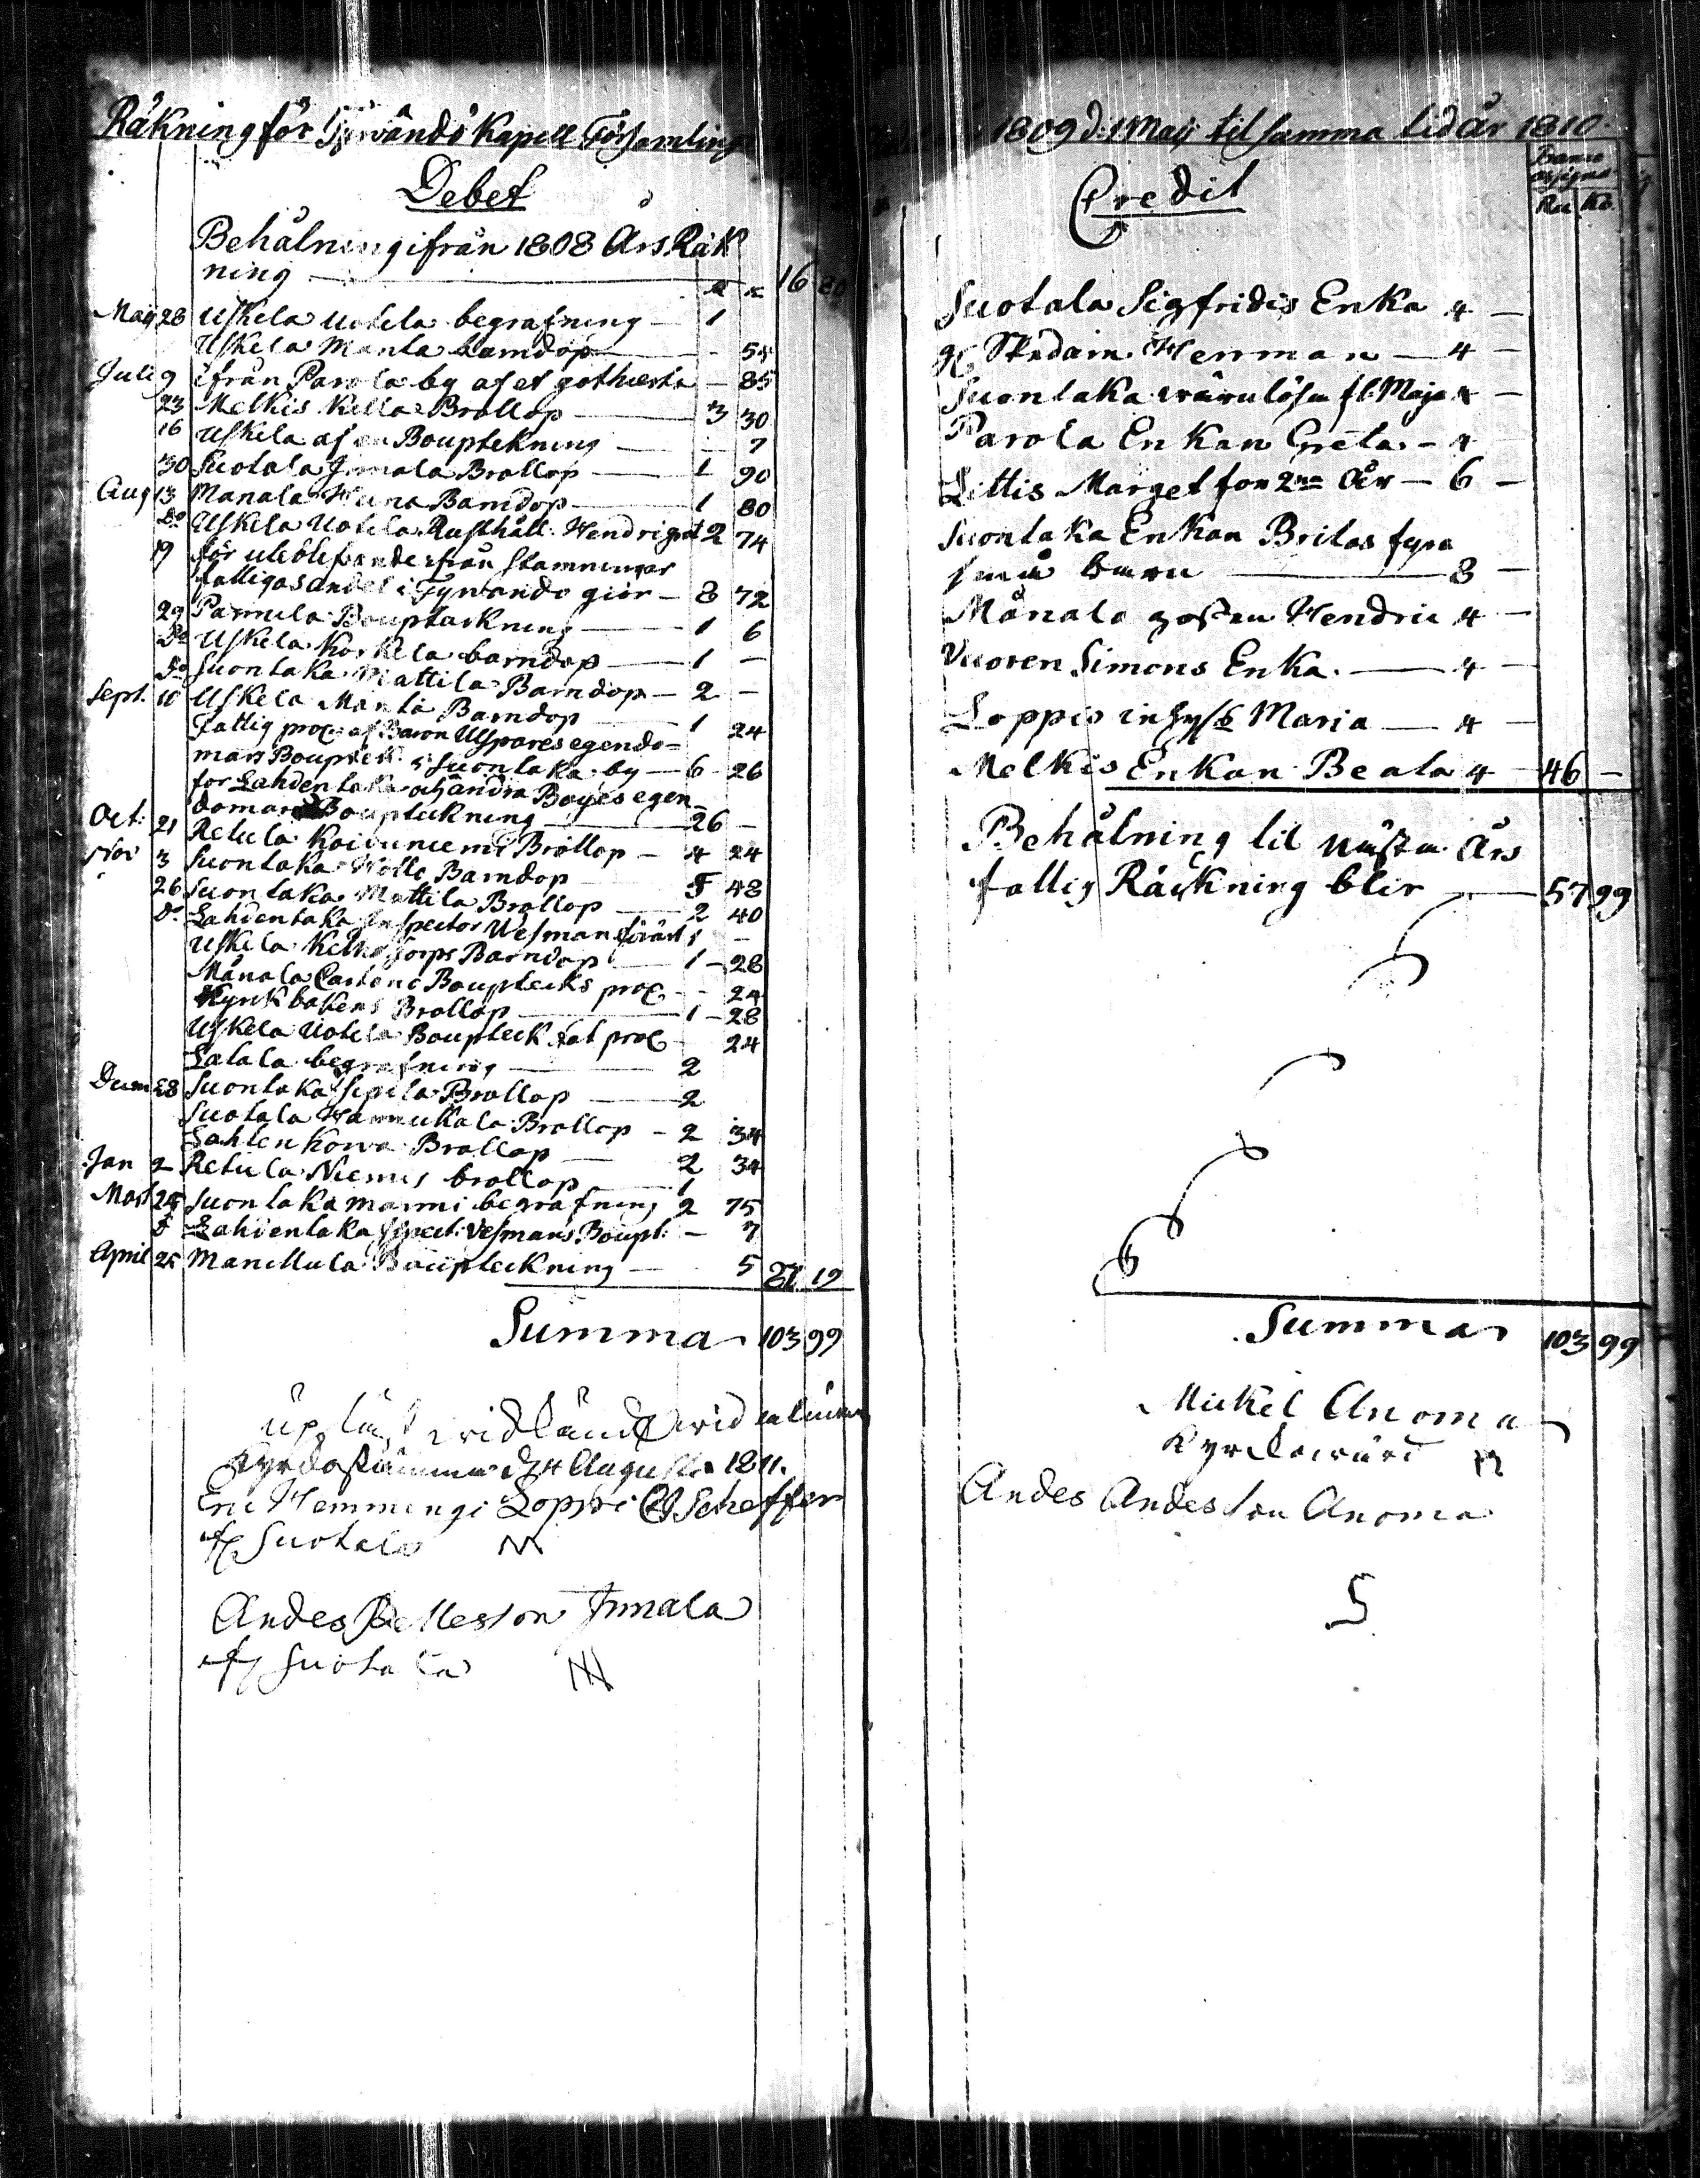 Räkning för Tyrvändö Kapell Församling
Debet
Behålning ifrån 1808 Års Räk
ning — 16 80
Maij 28 Uskela Uotila begrafning — 1
Uskela Manla barndop — 54
Juli 9 ifrån Parola by af et — 85
23 Melkis Killa Bröllop — 3 30
16 Uskela af en Bouptekning — 7
30 Suotala Jmala Bröllop — 1 90
Aug 13 Manala Barndop — 1 80
Do Uskela Uotila Rusthåll. Hendric 2 74
19 för ifrån Stamningar
fattigas andel i Tyrvändö giör — 8 72
29 Parmila Bouptäckning — 1 6
Do Uskela Korkela barndop — 1 —
Do Suontaka Mattila Barndop — 2 —
Sept. 10 Uskela Manla Barndop — 1 24
Fattig proc. af Baron Ulfspares egendo=
mars Bouptek. i Suontaka by — 6 26
for Lahdentaka och andra Boijes egen=
domars Bouptekning — 26 —
Oct: 21 Retula Koivuniemi Bröllop — 4 24
Nov 3 Suontaka Barndop 48
26 Suontaka Mattila Bröllop — 2 40
Do Lahdentaka Inspector Wesman 1 —
Uskela torps Barndop — 1 — 28
Månala Boupteks proc. — 24
Kyrkbakens Bröllop — 1 — 28
Uskela Uotila Bouptek fat proc 24
Lalala begrafning — 2
28 Suontaka Sipila Bröllop — 2
Suotala Hannukala Bröllop — 2 34
Lahten Korva Bröllop — 2 34
Jan 2 Retula Niemis bröllop — 1
Mart 25 Suontaka manni begrafning 2 75
Do Lahdentaka Wesmans Boupt: — 7
April 25 Manillula Bouptekning — 5 87 19
Summa 103 99
uplüst widkändt wid
Kyrkostämma d 4 Augusti 1811.
Eric Hemmingi Loppi Scheffer
fr Suotala
Andes Jmala
fr Suotala
1809 d: 1 Maij til samma tid år 1810
Banco
Assigna
Ru Ko.
Credit
Suotala Sigfridis Enka 4 —
Herman — 4 —
Suontaka wärnlösa fl: Maja 4 —
Parola Enkan Greta — 4
Littis Marget for 2ne År — 6 —
Suontaka Enkan Britas fyra
små barn — 8 —
Månala gossen Hendric 4 —
Vuoren Simons Enka — 4 —
Loppis inhys Maria — 4 —
Melkis Enkan Beata 4 — 46 —
Behålning til nästa Års
fattig Räkning blir — 57 99
Summa 103 99
Mickel Anoma
Kyrkowärd
Andes Andesson Anoma